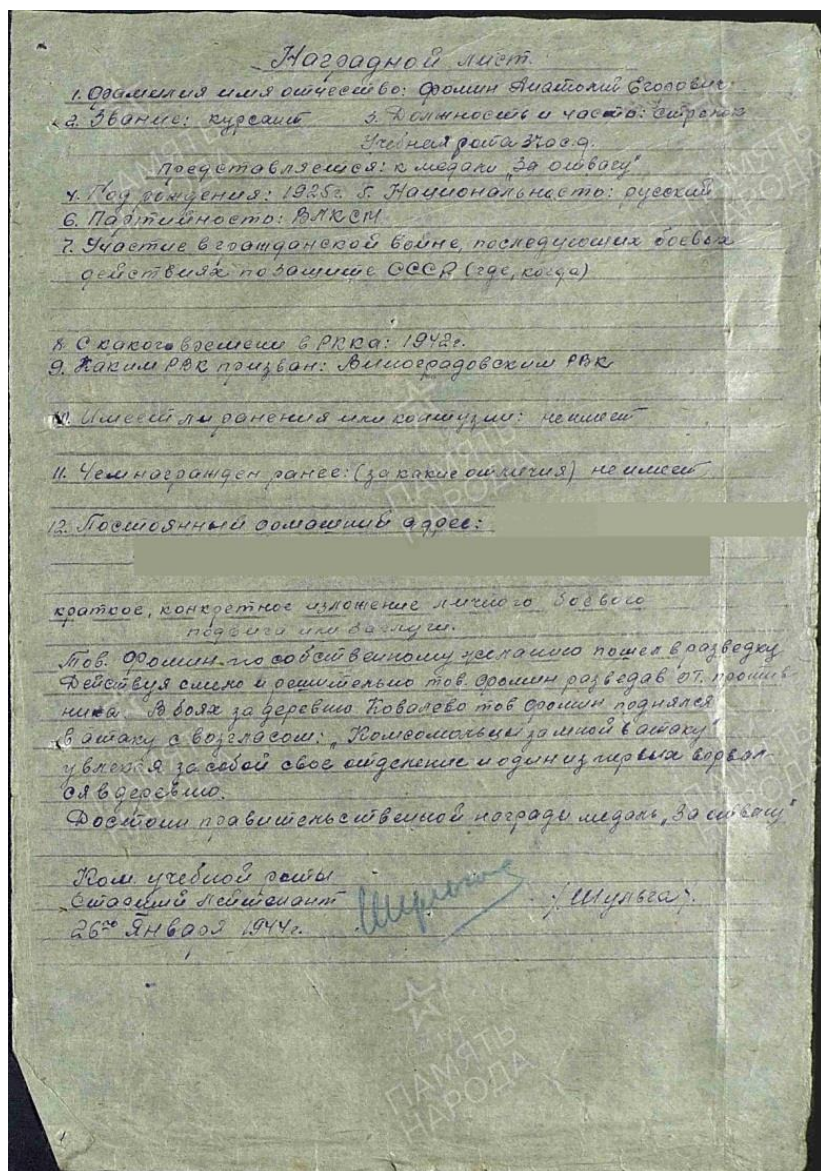 Наградной лист.
1. Фамилия имя отчество: Фомин Анатолий Егорович
2. Звание: курсант 3. Должность и часть: стрелок
Учебная рота 370 с.д.
представляется: к медали „За отвагу"
4. Год рождения: 1925г. 5. Национальность: русский
6. Партийность: ВЛКСМ
7. Участие в гражданской войне, последующих боевых
действиях по защите СССР (где, когда)
8. С какого времени в РККА: 1942г.
9. Каким РВК призван: Виноградовским РВК
10. Имеет ли ранения или контузии: не имеет
11. Чем награжден ранее: (за какие отличия) не имеет
12. Постоянный домашний адрес:
краткое, конкретное изложение личного боевого
подвига или заслуги.
Тов. Фомин по собственному желанию пошел в разведку
Действуя смело и решительно тов. Фомин разведав от. против
ника. В боях за деревню Ковалево тов Фомин поднялся
в атаку с возгласом: „Комсомольцы за мной в атаку"
увлекая за собой свое отделение и один из первых ворвал-
ся в деревню.
Достоин правительственной награды медаль „За отвагу"
Ком. учебной роты
Старший лейтенант /Шульга/.
26го Января 1944г.
ПАМЯТЬ
НАРОДА